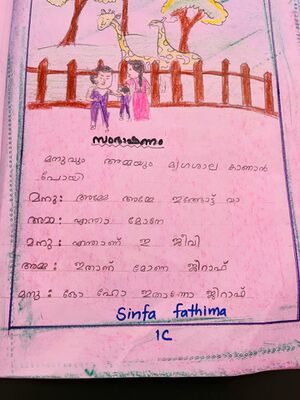 സംഭാഷണം
മനുവും അമ്മയും മൃഗശാല കാണാൻ
പോയി
മനു: അമ്മേ അമ്മേ ഇങ്ങോട്ട് വാ
അമ്മ: എന്താ മോനേ
മനു: എന്താണ് ഇ ജീവി
അമ്മ: ഇതാണ് മോനേ ജിറാഫ്
മനു: ഓ ഹോ ഇതാണോ ജിറാഫ്
Sinfa fathima
1C